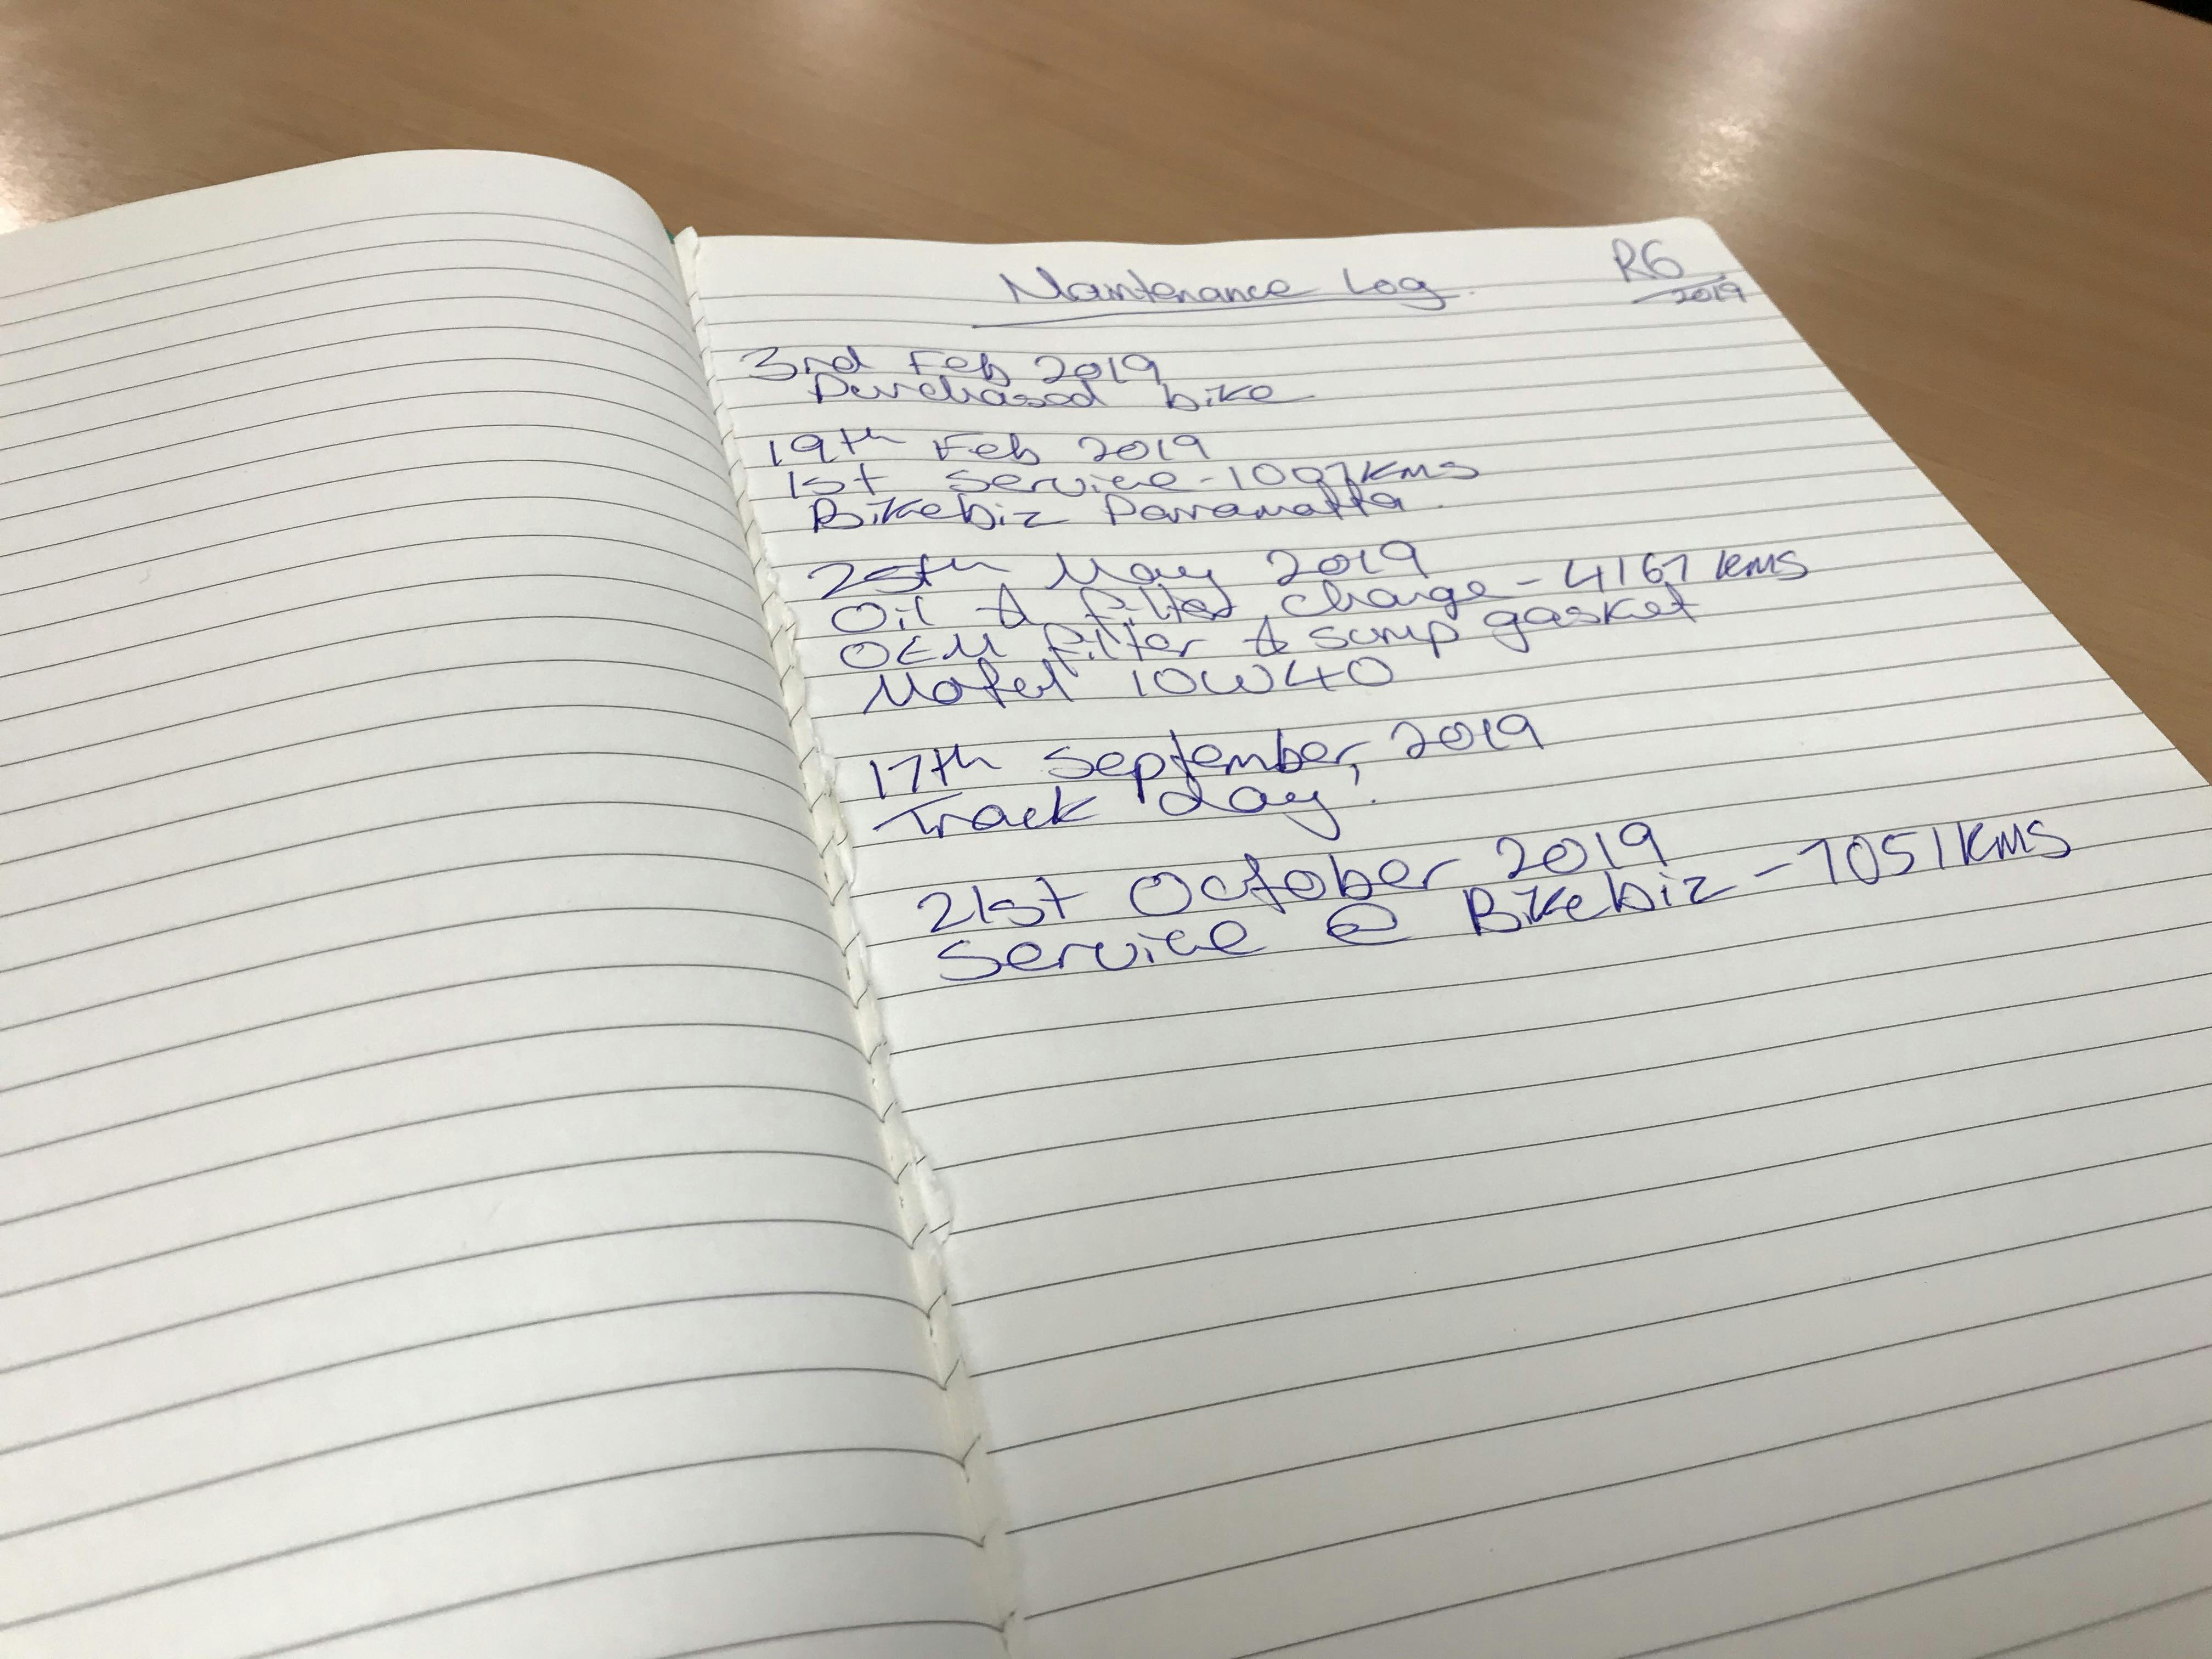 Maintenance Log.
R6
2019
3rd Feb 2019
Purchased bike
19th Feb 2019
1st service - 1007kms
Bikebiz Paramatta.
25th May 2019
Oil & filter change - 4167 kms
OEM filter & sump gasket
Motul 10W40
17th September, 2019
Track day!
21st October 2019
Service @ Bikebiz - 7051kms